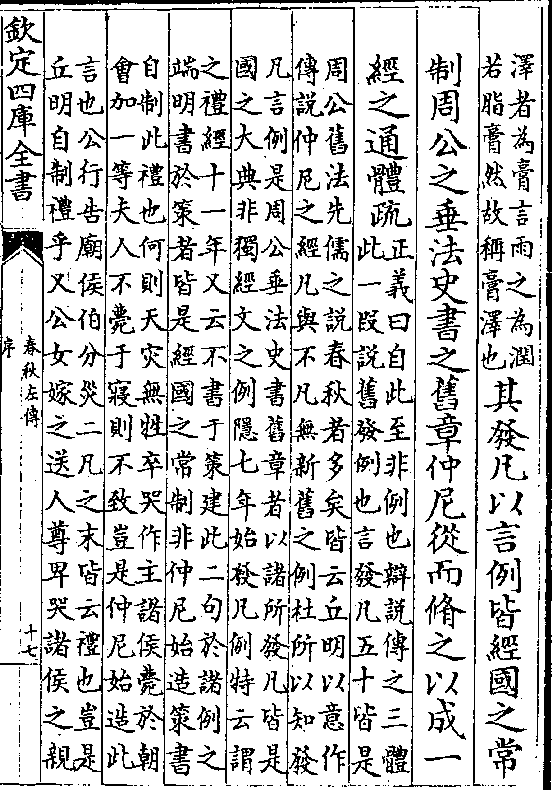 澤者為膏言雨之為潤
若脂膏然故稱膏澤也
其發凡以言例皆經國之常
制周公之垂法史書之舊章仲尼從而脩之以成一
經之通體疏
正義曰自此至非例也辯説傳之三體
此一段説舊發例也言發凡五十皆是
周公舊法先儒之説春秋者多矣皆云丘明以意作
傳説仲尼之經凡與不凡無新舊之例杜所以知發
凡言例是周公垂法史書舊章者以諸所發凡皆是
國之大典非獨經文之例隱七年始發凡例特云謂
之禮經十一年又云不書于策建此二句於諸例之
端明書於策者皆是經國之常制非仲尼始造策書
自制此禮也何則天灾無牲卒哭作主諸侯薨於朝
會加一等夫人不薨于寢則不致豈是仲尼始造此
言也公行告廟侯伯分災二凡之末皆云禮也豈是
丘明自制禮乎又公女嫁之送人尊卑哭諸侯之親
欽定四庫全書
春秋左傳
序
十七